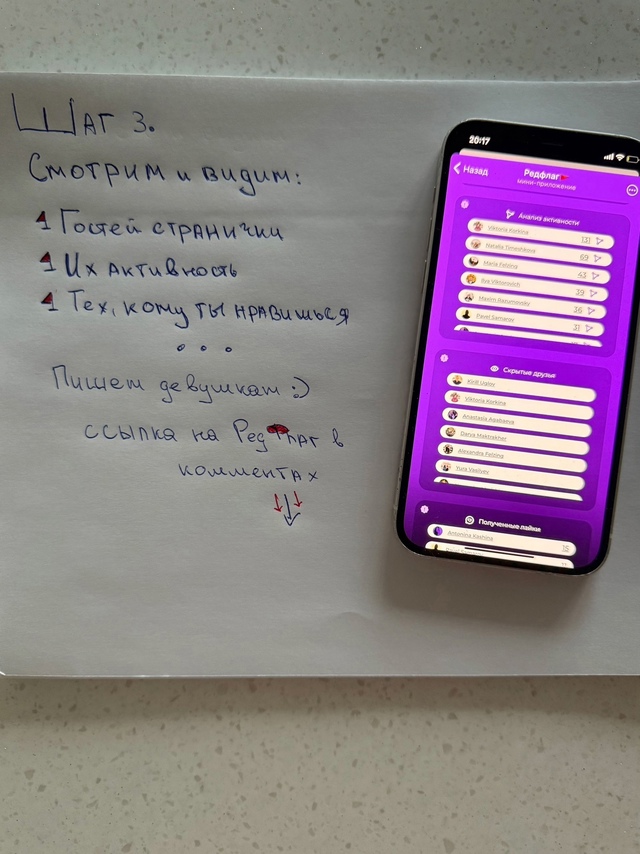 Шаг 3.
Смотрим и видим:
Гостей странички
Их активность
Тех, кому ты нравишься
...
Пишем девушкам :)
ссылка на Редфлаг в
комментах
20:17
Назад
Редфлаг
мини-приложение
Анализ активности
Viktoria Korkina 131
Natalia Timeshkova 69
Maria Felzing 43
Ilya Viktorovich 39
Maxim Razumovsky 36
Pavel Samarov 31
Скрытые друзья
Kirill Uralov
Viktoria Korkina
Anastasia Agabaeva
Darya Makhrakher
Alexandra Felzing
Yura Vasilyev
Полученные лайки
Antonina Kashina 15